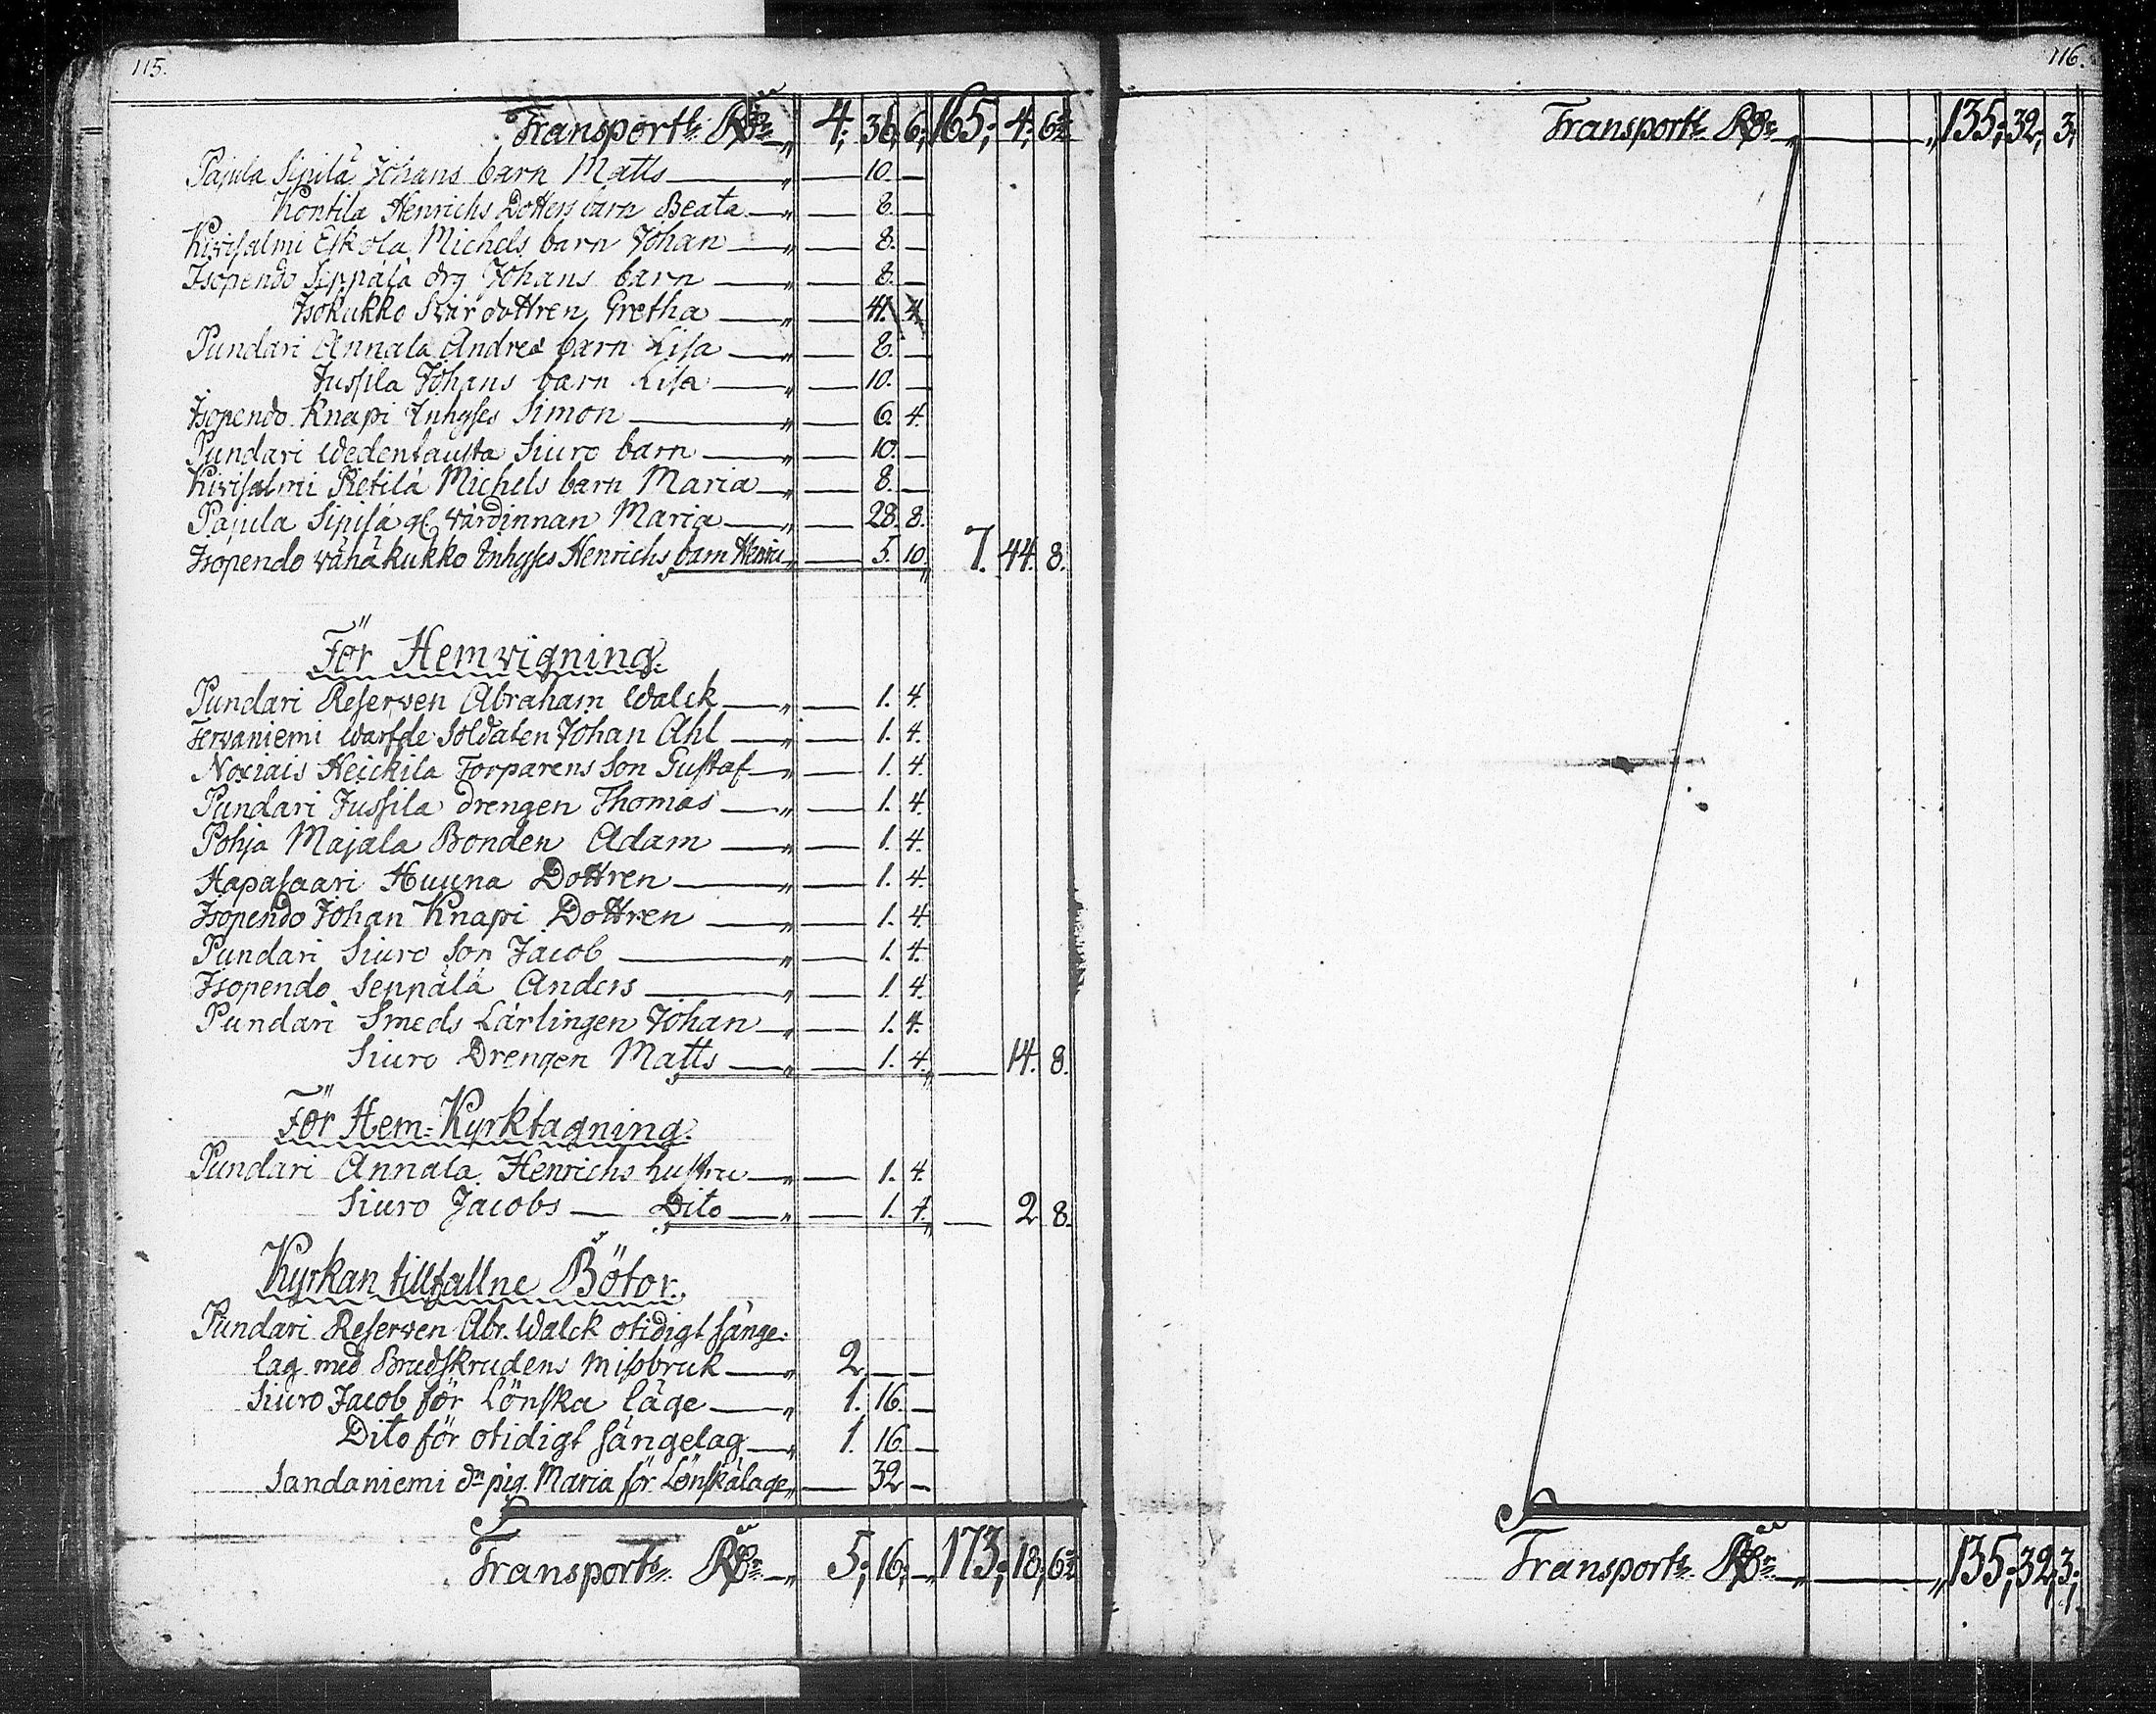 115.
Transport R:dr 4; 36; 6; 165; 4; 6½
Pajula Sipilä Johans barn Matts — „ — 10. —
Kontila Henrichs Dotters barn Beata — „ — 8. —
Kivisalmi Eskola Michels barn Johan — „ — 8. —
Isopendo Seppälä drg Johans barn — „ — 8. —
Isokukko Svär dottren Gretha — „ — 41. 4
Pundari Annala Andres barn Lisa — „ — 8. —
Jussila Johans barn Lisa — „ — 10. —
Isopendo Knapi Inhyses Simon — „ — 6. 4.
Pundari Wedentausta Siuro barn — „ — 10. —
Kivisalmi Pietilä Michels barn Maria — „ — 8. —
Pajula Sipilä gl värdinnan Maria — „ — 28. 8.
Isopendo Vähäkukko Inhyses Henrichs barn Henric „ — 5. 10. 7. 44. 8.
För Hemvigning.
Pundari Reserven Abraham Walck — „ — 1. 4.
Tervaniemi Warfde Soldaten Johan Ahl — „ — 1. 4.
Noxiais Heickilä Torparens Son Gustaf — „ — 1. 4.
Pundari Jussila drengen Thomas — „ — 1. 4.
Pohja Majala Bonden Adam — „ — 1. 4.
Hapasaari Huuna Dottren — „ — 1. 4.
Isopendo Johan Knapi Dottren — „ — 1. 4
Pundari Siuro Son Jacob — „ — 1. 4.
Isopendo Seppälä Anders — „ — 1. 4.
Pundari Smeds Lärlingen Johan — „ — 1. 4.
Siuro Drengen Matts — „ — 1. 4. „ — 14. 8.
För Hem-Kyrktagning.
Pundari Annala Henrichs hustru — „ — 1. 4.
Siuro Jacobs — Dito — „ — 1. 4. „ — 2 8.
Kyrkan tillfallne Böter.
Pundari Reserven Abr. Walck otidigt sänge-
lag med Brudskrudens Missbruk — „ 2 — —
Siuro Jacob för Lönska läge — „ 1. 16. —
Dito för otidigt sängelag — „ 1. 16. —
Sandaniemi dn pig. Maria för Lönskaläge „ — 32 —
Transport R:dr — „ 5; 16; — „ 173; 18; 6½
116.
Transport R:dr „ — „ 135; 32; 3;
Transport R:dr — „ — „ 135; 32; 3;